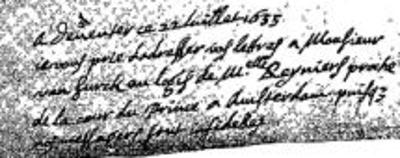 A Deventer ce 22 Juillet 1635
ie vous prie d'adresser vos lettres a Monsieur
van Surck au logis de M.elle Reyniers proche
de la cour du Prince a Amsterdam
messagers sont infideles